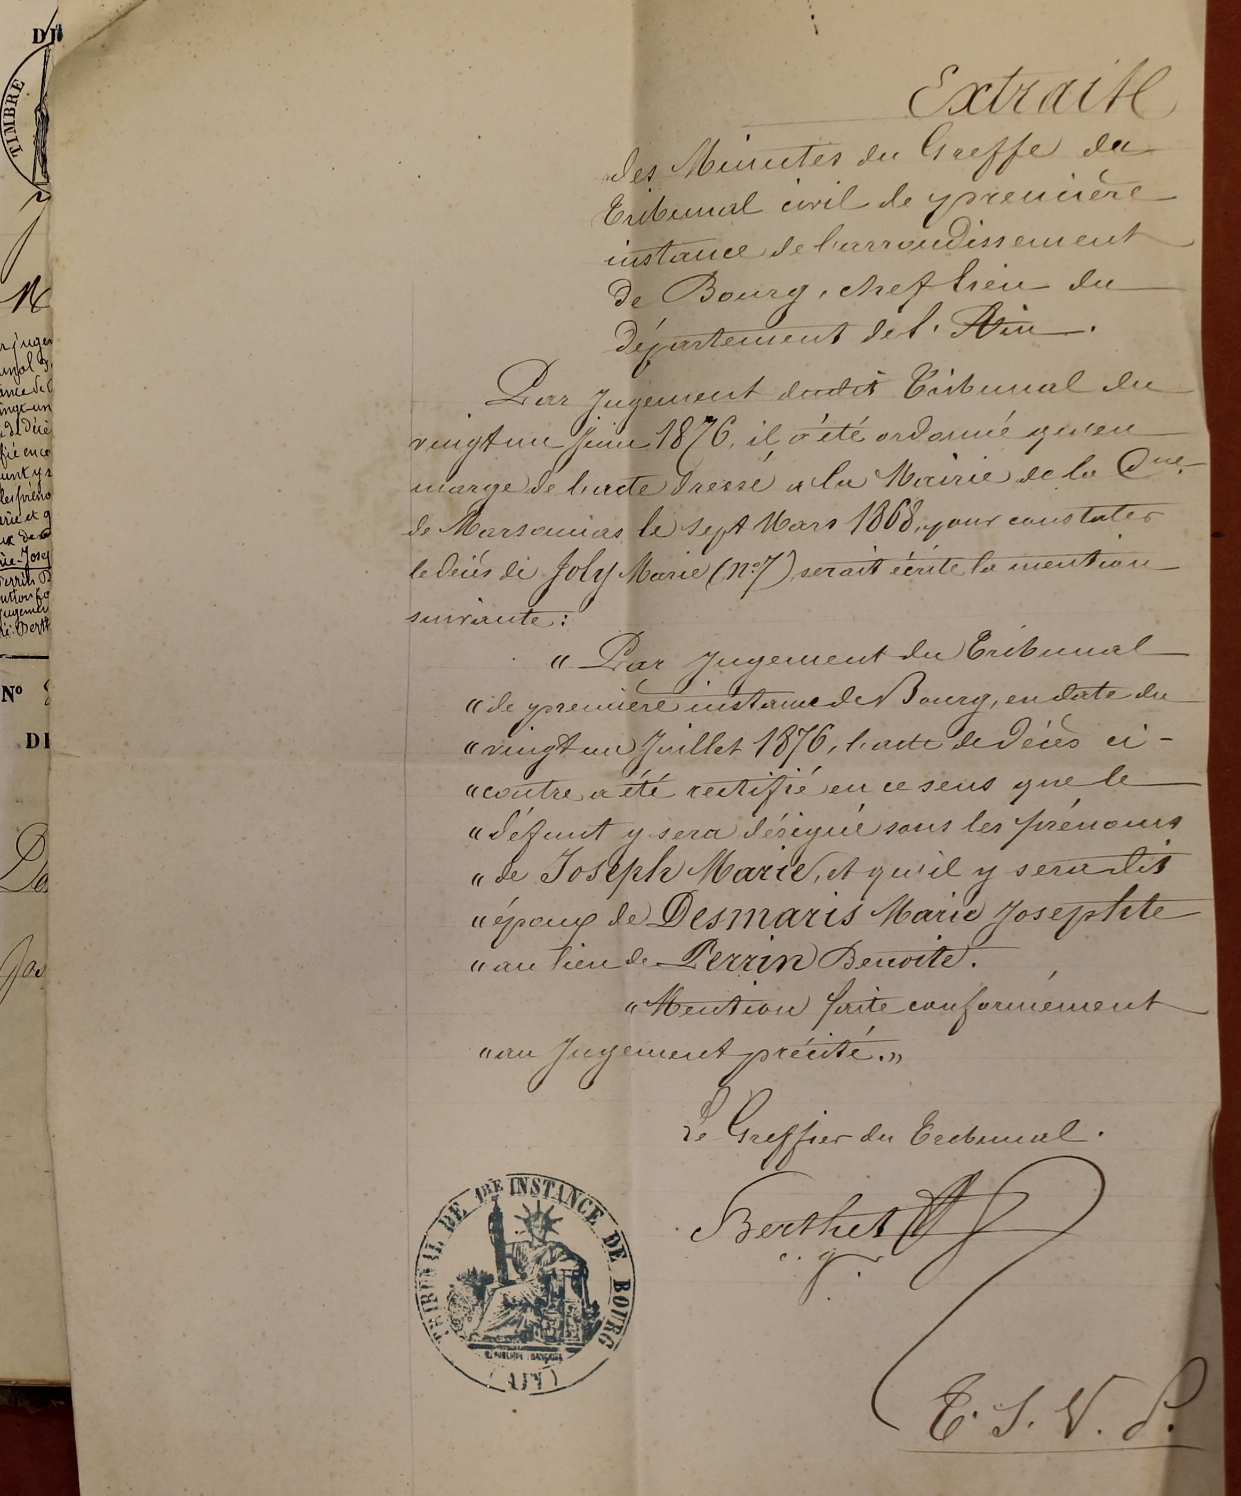 DE
TIMBRE
N°
DE
Extrait
des Minutes du Greffe du
Tribunal civil de première
instance de l'arrondissement
de Bourg, chef lieu du
département de l'Ain.
Par jugement dudit Tribunal du
vingt un juin 1876, il a été ordonné qu'en
marge de l'acte dressé à la Mairie de la Cne
de Marsonnas le sept Mars 1868, pour constater
le décès de Joly Marie (n° 7) serait écrite la mention
suivante:
" Par jugement du Tribunal
" de première instance de Bourg, en date du
" vingt un Juillet 1876, l'acte de décès ci-
" contre a été rectifié en ce sens que le
" défunt y sera désigné sous les prénoms
" de Joseph Marie, et qu'il y sera dit
" époux de Desmaris Marie Josephte
" au lieu de Perrin Benoite.
" Mention faite conformément
" au jugement précité. "
Le Greffier du Tribunal.
Berthet
c. g.
TRIBUNAL DE 1RE INSTANCE DE BOURG
(AIN)
T. S. V. P.